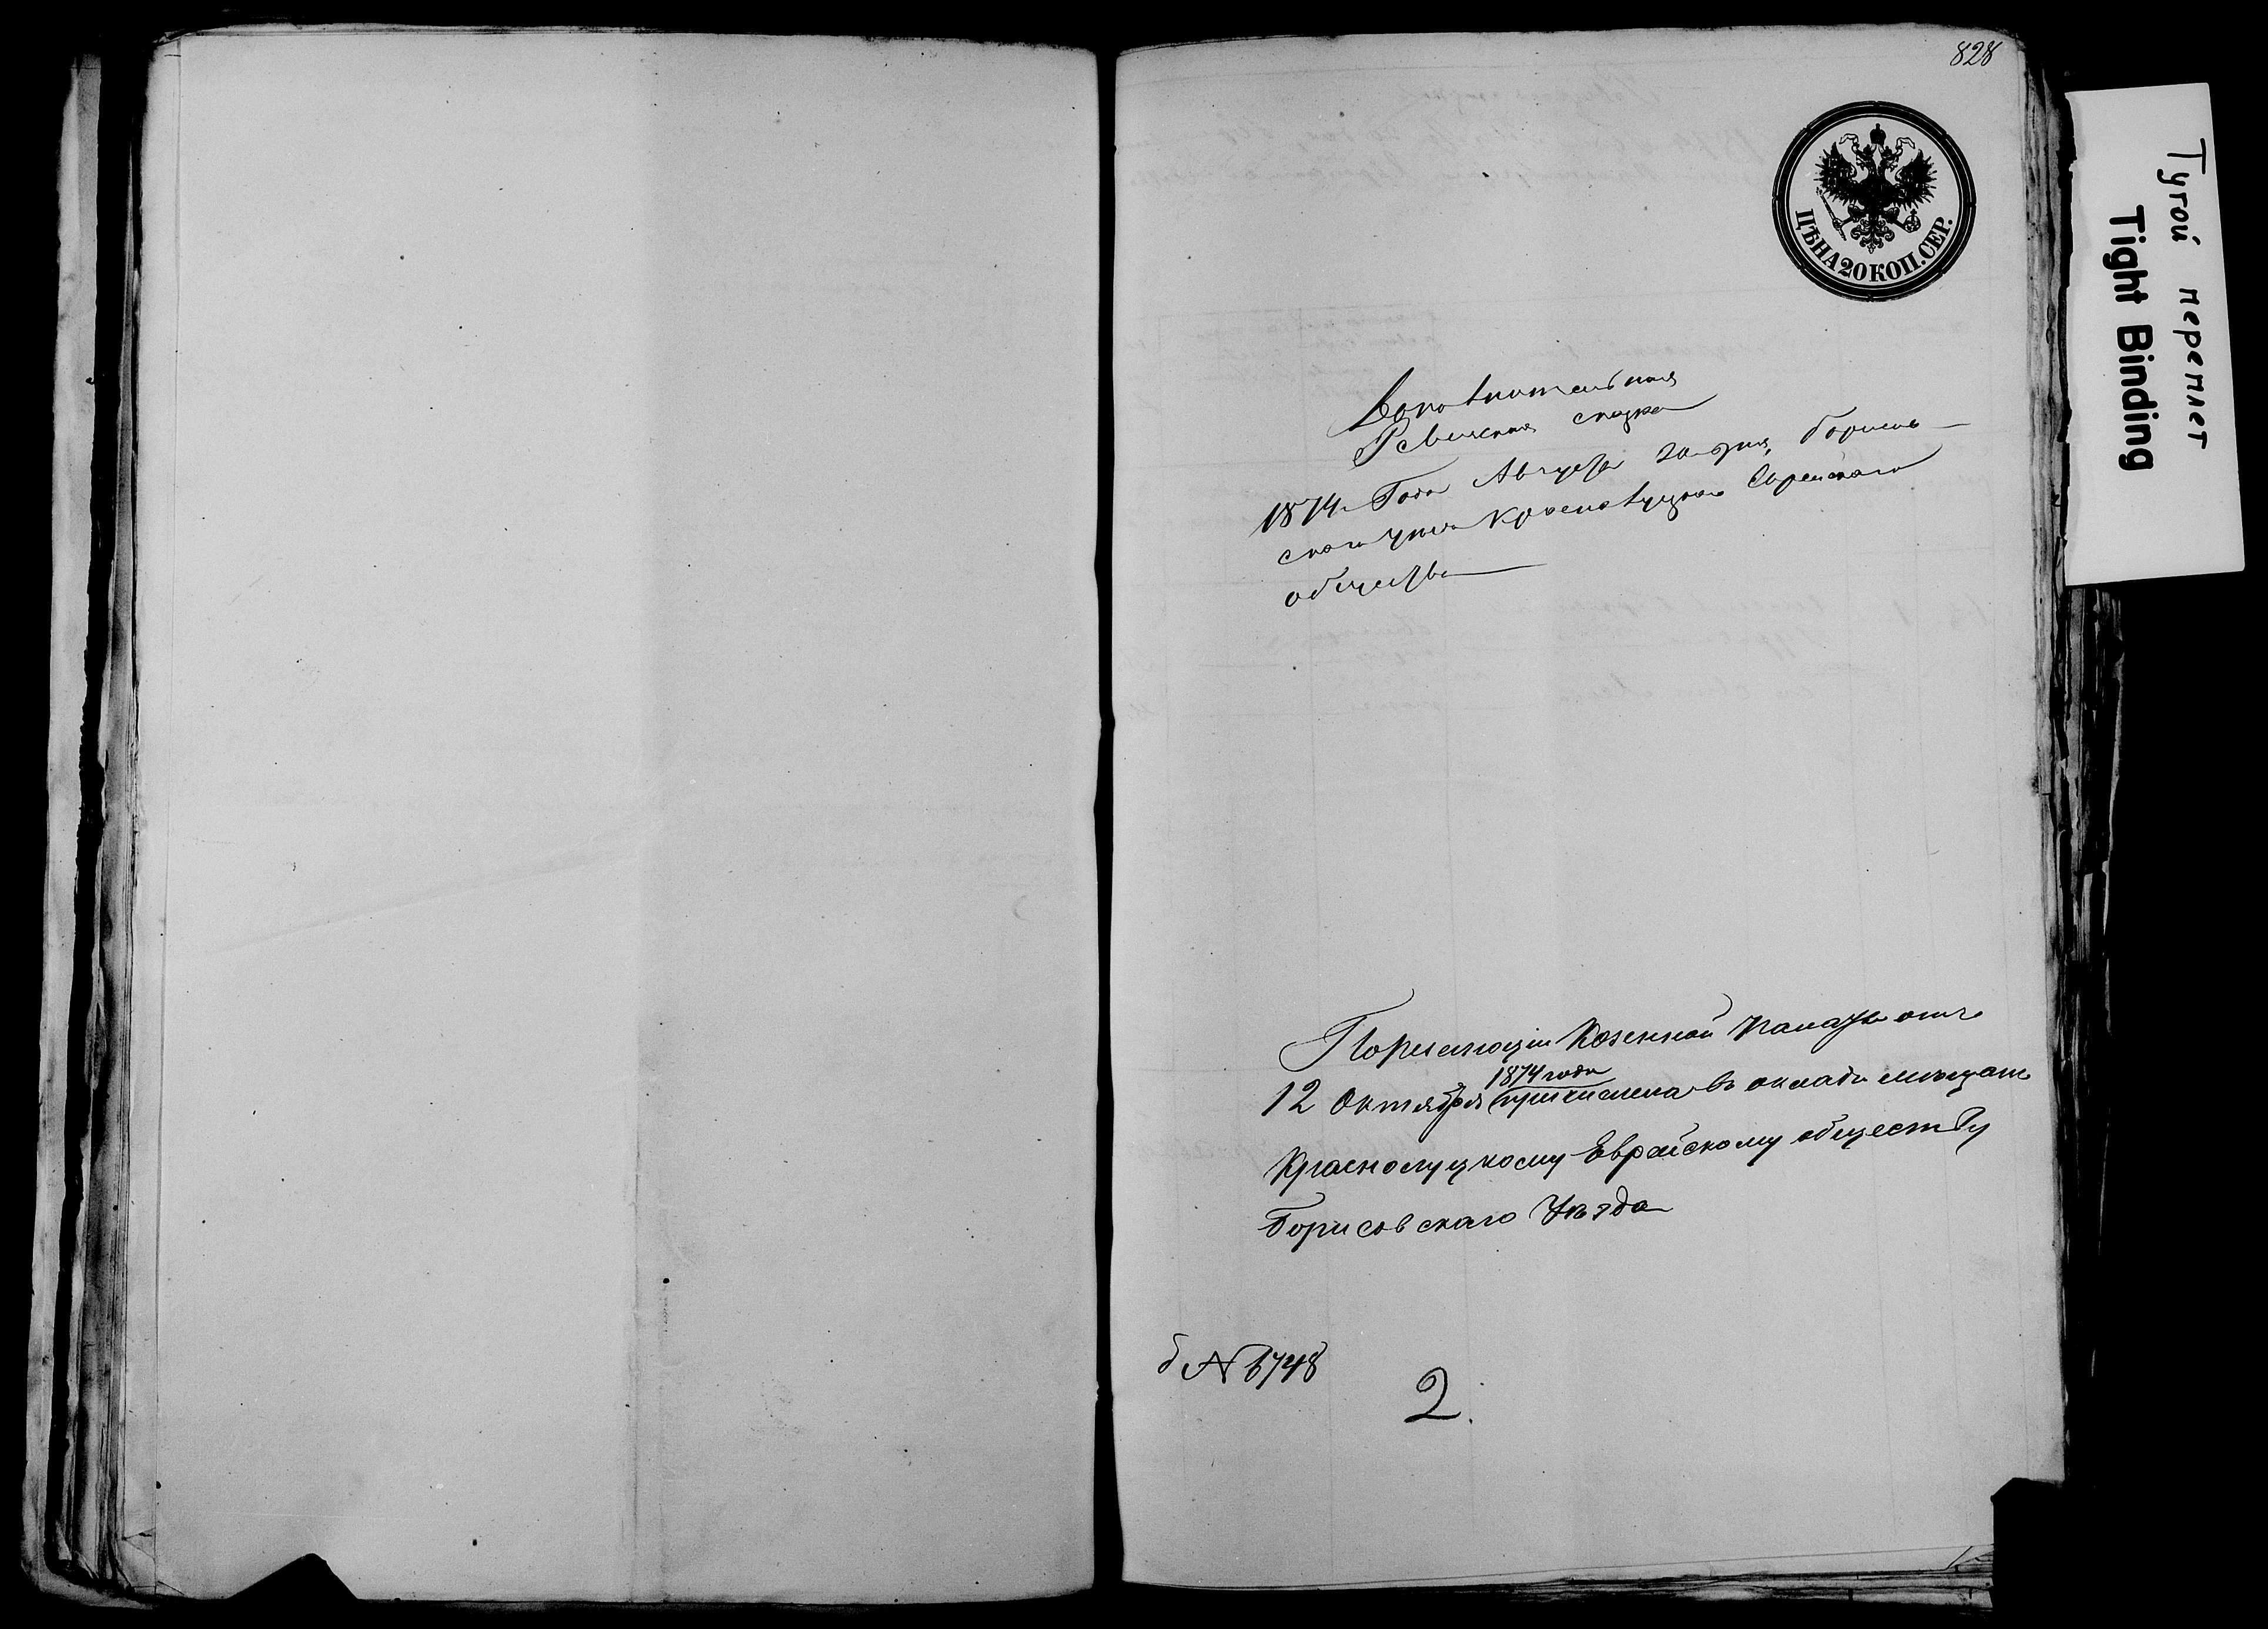 828
ЦѢНА 20 КОП. СЕР.
Тугой переплет
Tight Binding
Дополнительная
Ревизская сказка
1874 Года Августа 20 дня, Борисов-
скаго уезда Краснолуцкаго Еврейскаго
общества
По резолюціи Казенной Палаты отъ
1874 года
12 Октября причислена въ окладъ мѣщанъ
Краснолуцкому Еврейскому обществу
Борисовскаго Уѣзда
№ 6748
2.